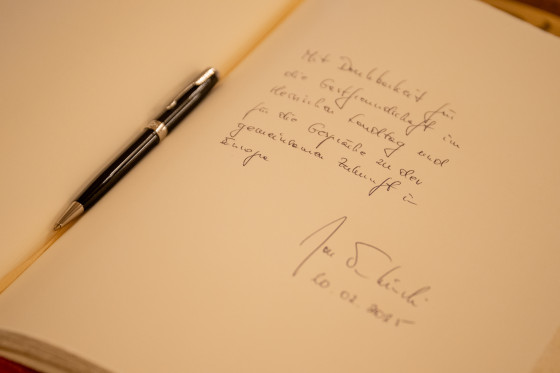 Mit Dankbarkeit für
die Gastfreundschaft im
Hessischen Landtag und
für die Gespräche zu der
gemeinsamen Zukunft in
Europa
20.02.2025